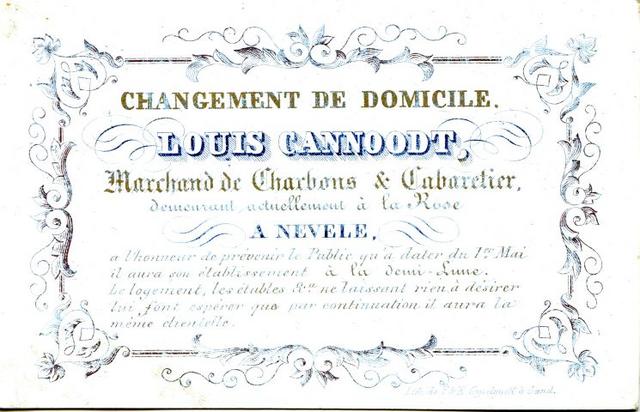 CHANGEMENT DE DOMICILE.
LOUIS CANNOODT,
Marchand de Charbons & Cabaretier,
demeurant, actuellement à la Rose
A NEVELE,
a l'honneur de prévenir le Public qu'à dater du 1er Mai
il aura son établissement à la demi-Lune.
Le logement, les étables &a ne laissant rien à désirer
lui font espérer que par continuation il aura la
même clientelle.
Lith. de à Gand.